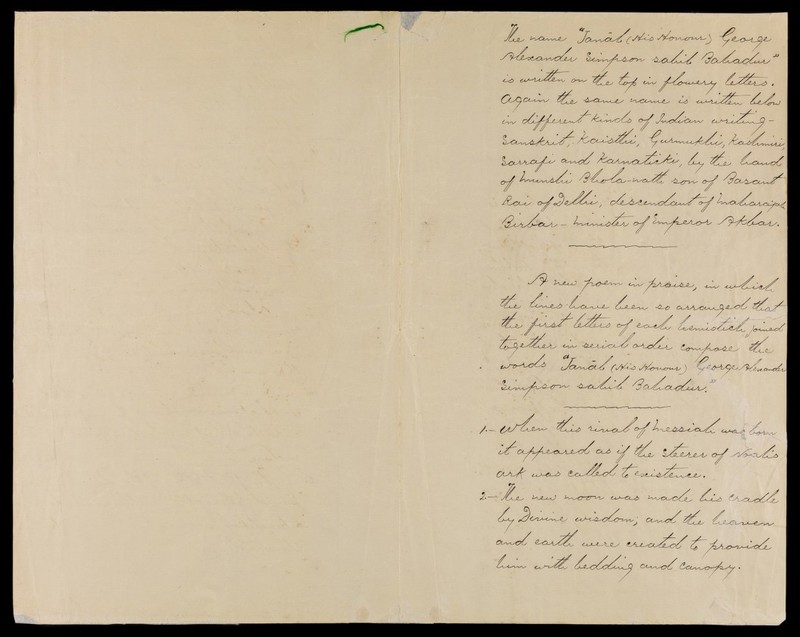 The name "Janāb (His Honour) George
Alexander Simpson sahib Bahadur"
is written on the top in flowery letters.
Again the same name is written below
in different kinds of Indian writing -
Sanskrit, Kaisthi, Gurmukhi, Kashmiri,
Sarrafi and Karnaticki, by the hand
of Munshi Bhola-nath son of Basant
Rai of Delhi, descendant of Maharajah
Birbar - minister of Emperor Akbar.
A new poem in praise, in which
the lines have been so arranged that
the first letters of each hemistich joined
together in serial order compose the
words "Janāb (His Honour) George Alexander
Simpson sahib Bahadur."
1- When this rival of Messiah was born
it appeared as if the steerer of Noah's
ark was called to existence.
2- The new moon was made his cradle
by Divine wisdom, and the heaven
and earth were created to provide
him with bedding and canopy.